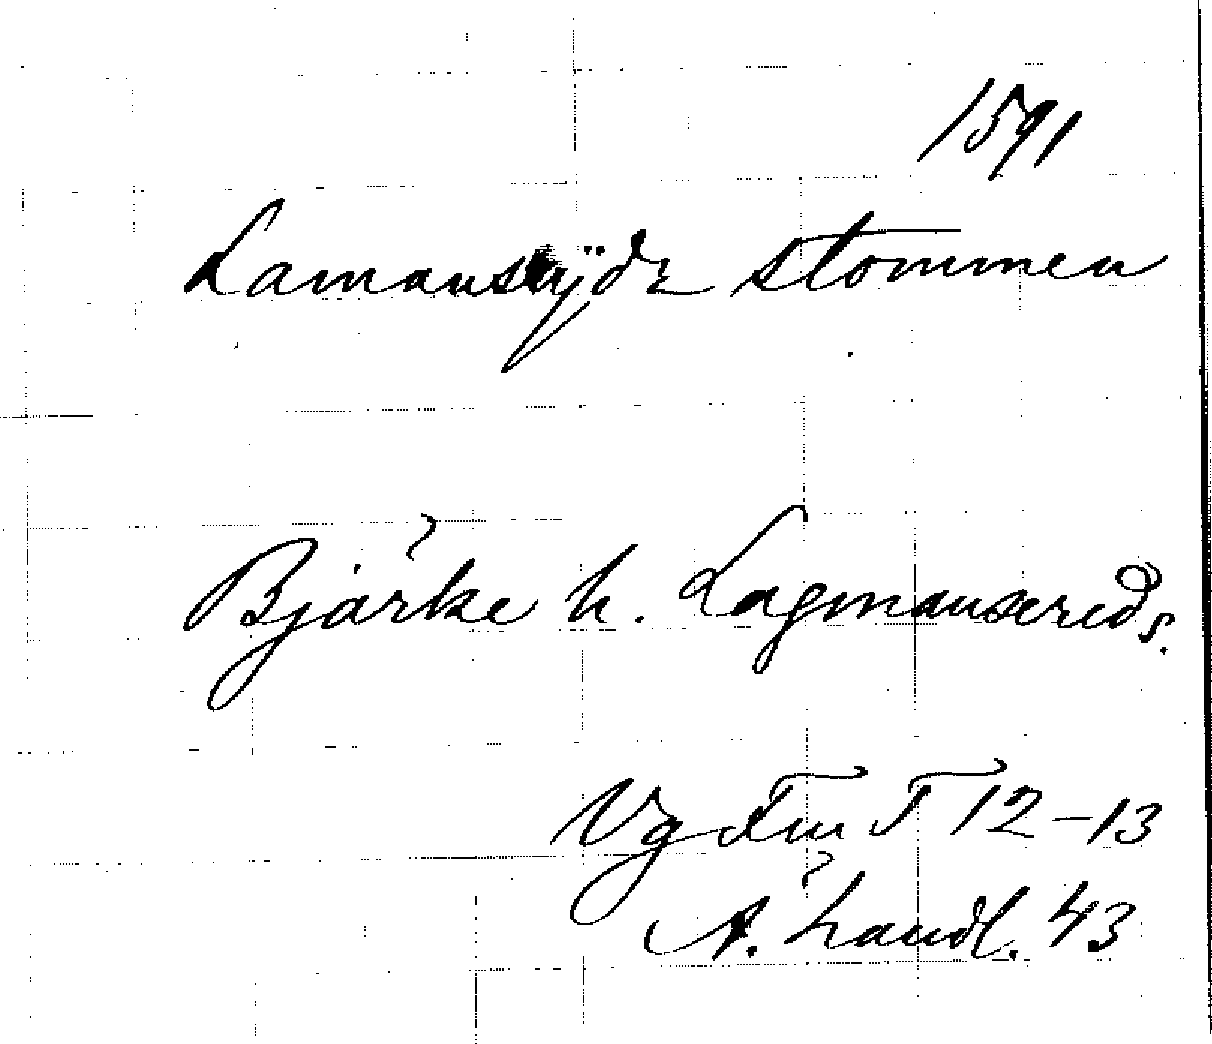 1591
Lamansrÿdz stommen
Bjärke h. Lagmansereds s.
Vg Fm I 12-13
Ä. handl. 43